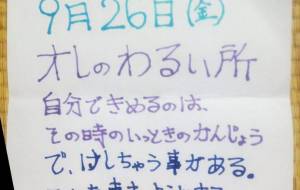 9月26日(金)
オレのわるい所
自分できめるのは、
その時のいっときのかんじょう
で、けしちゃう事がある。